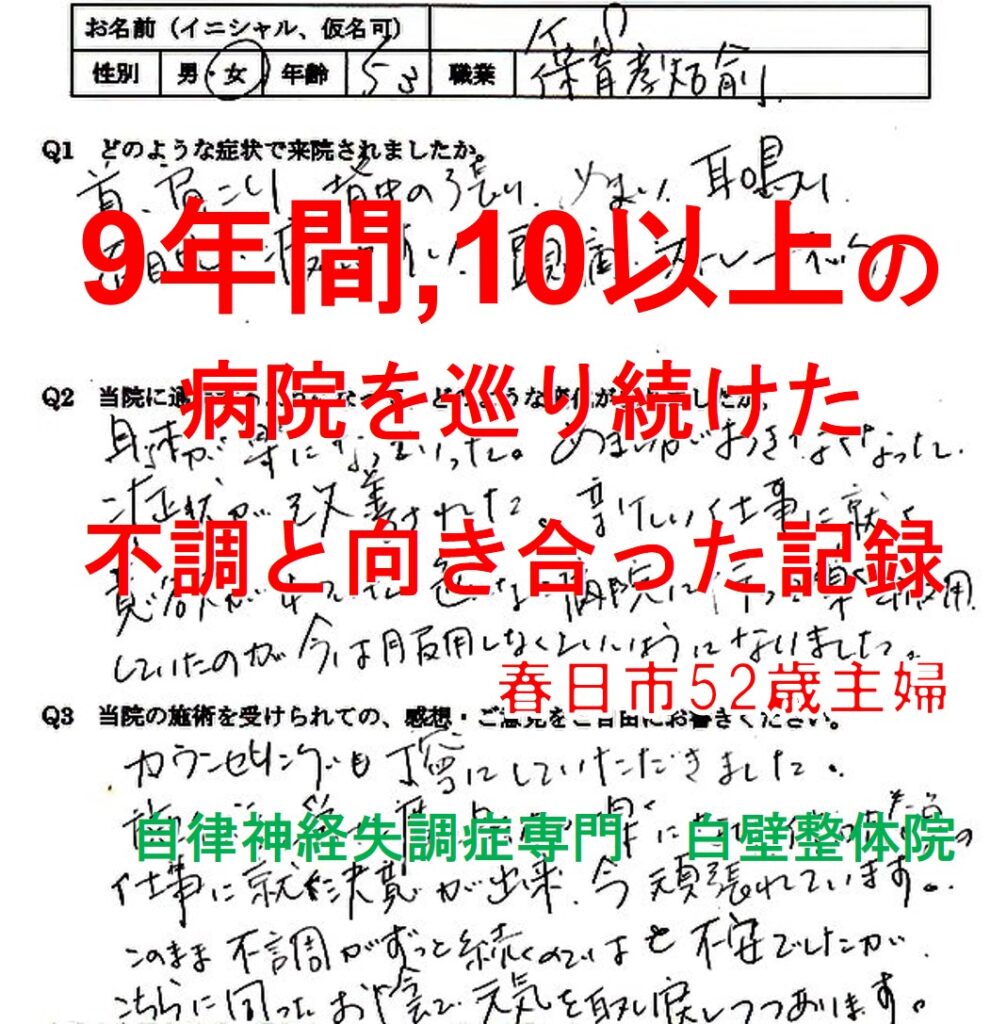 お名前（イニシャル、仮名可）
性別 男・女 年齢 53 職業
Q1 どのような症状で来院されましたか。
首、肩こり 背中の張り、めまい、耳鳴り
9年間,10以上の
頭痛
Q2 当院に
病院を巡り続けた
身体が楽になっていった。めまいがおきなくなった。
症状が改善された。新しい仕事に就く
不調と向き合った記録
病院に行って薬を服用
していたのが今は服用しなくていいようになりました。
春日市52歳主婦
Q3 当院の施術を受けられての、感想・ご意見をご自由にお書きください。
カウンセリングも丁寧にしていただきました。
自律神経失調症専門 白壁整体院
仕事に就く決意が出来、今頑張れています。
このまま不調がずっと続くのではと不安でしたが
こちらに伺ったお陰で元気を取り戻しつつあります。